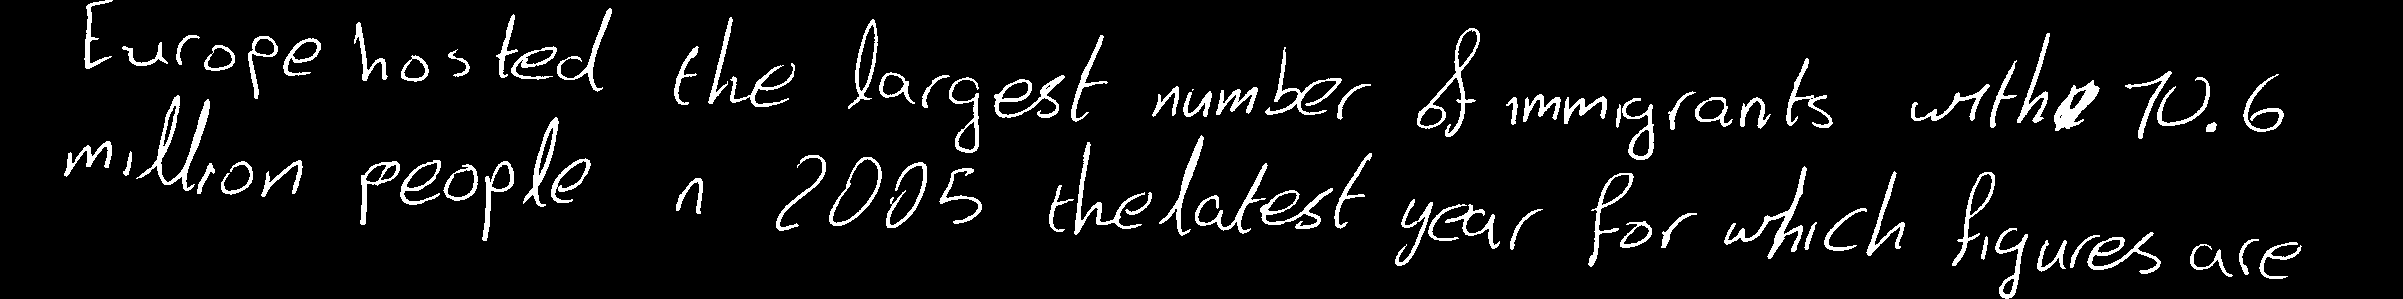 Europe hosted the largest number of immigrants with 70.6
million people n 2005 the latest year for which figures are